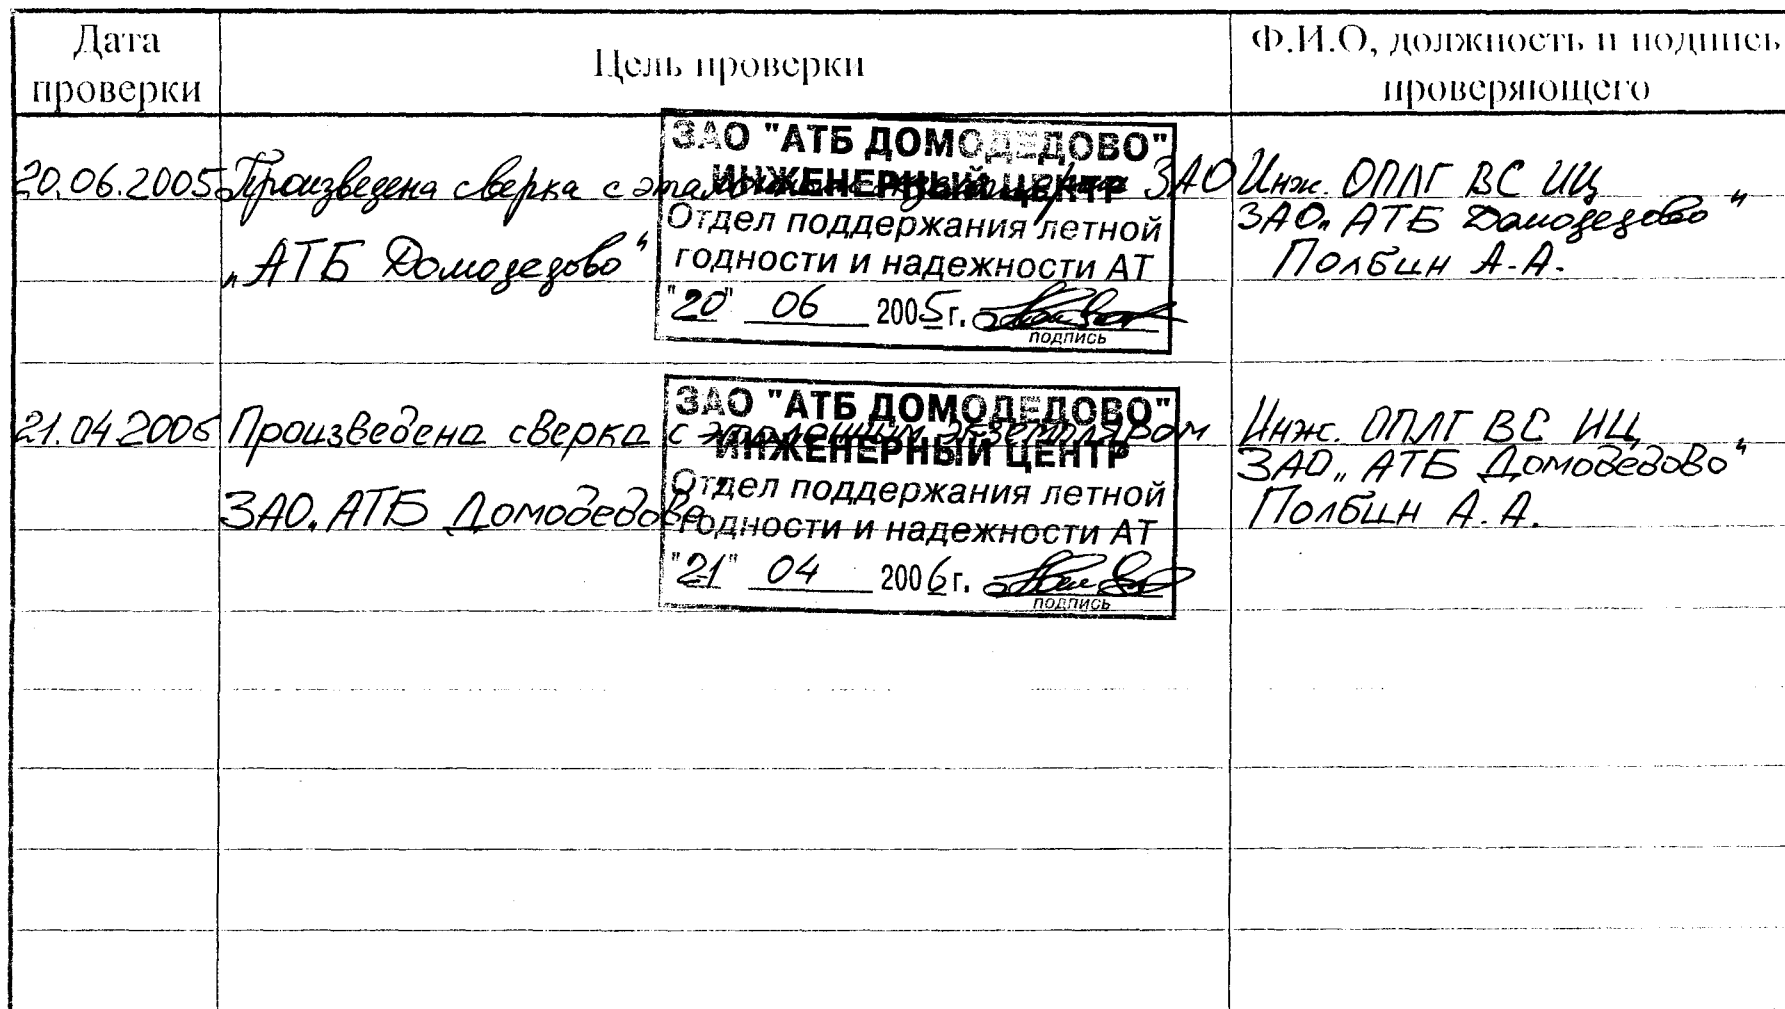 Дата проверки
Цель проверки
Ф.И.О, должность и подпись проверяющего
20.06.2005
Произведена сверка с эталонным экземпляром ЗАО
„АТБ Домодедово“
ЗАО "АТБ ДОМОДЕДОВО"
ИНЖЕНЕРНЫЙ ЦЕНТР
Отдел поддержания летной
годности и надежности АТ
"20" 06 2005 г.
подпись
Инж. ОПЛГ ВС ИЦ
ЗАО „АТБ Домодедово“
Полбин А.А.
21.04.2006
Произведена сверка с эталонным экземпляром
ЗАО „АТБ Домодедово“
ЗАО "АТБ ДОМОДЕДОВО"
ИНЖЕНЕРНЫЙ ЦЕНТР
Отдел поддержания летной
годности и надежности АТ
"21" 04 2006 г.
подпись
Инж. ОПЛГ ВС ИЦ
ЗАО „АТБ Домодедово“
Полбин А.А.